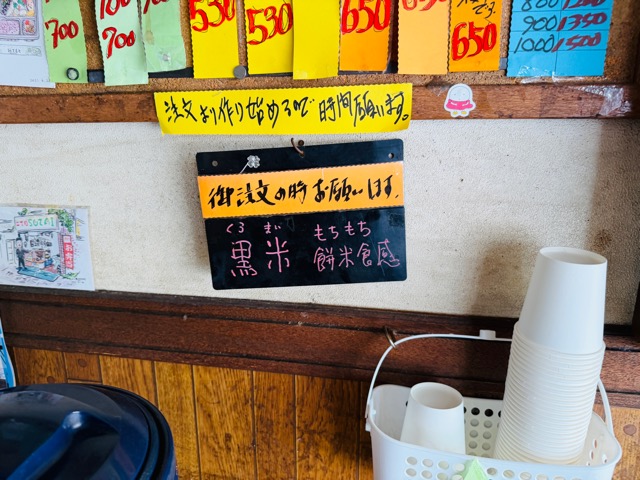 700
700
700
530
530
350
650
650
です
800 1200
900 1350
1000 1500
注文より作り始めるので時間願います。
御注文の時お願いします。
くろ まい
黒米
もちもち
餅米食感